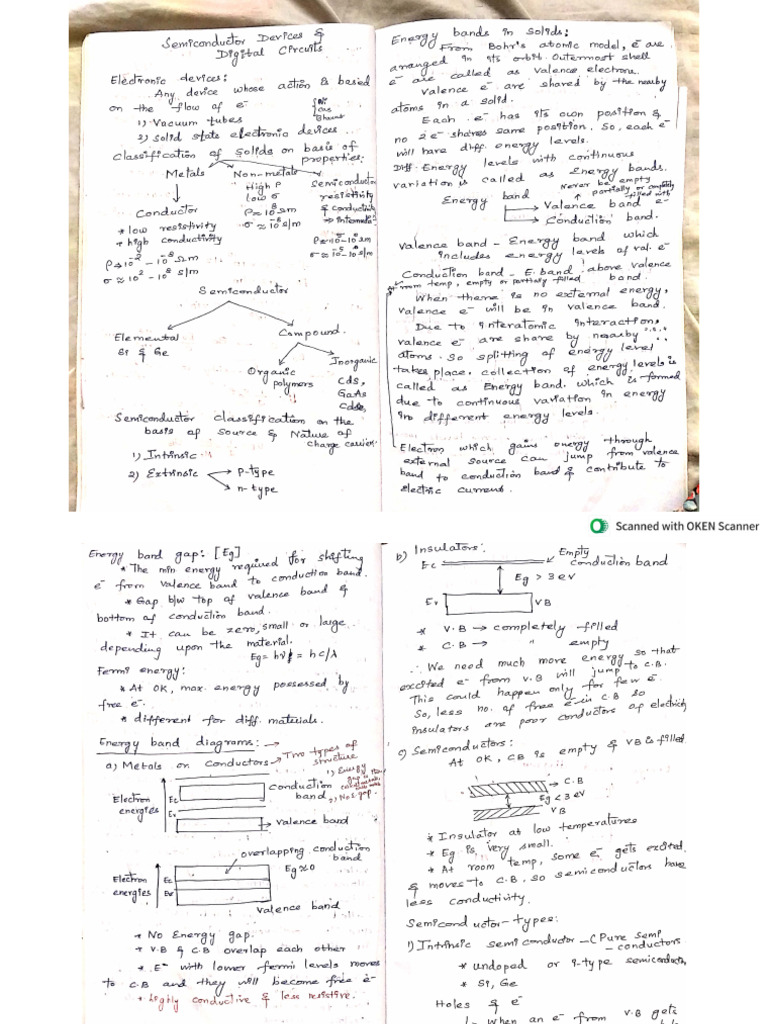 Semiconductor Devices &
Digital Circuits
Electronic devices:
Any device whose action is based
on the flow of e-
1) Vacuum tubes
2) Solid state electronic devices
Classification of Solids on basis of
properties:
Metals Non-metals Semiconductor
High ρ
low σ
resistivity
& conductivity
Conductor
* low resistivity
* high conductivity
ρ → 10^-2 - 10^-8 Ωm
σ ≈ 10^2 - 10^8 S/m
Semiconductor
Elemental
Si & Ge
Compound
Organic
polymers
Inorganic
CdS,
GaAs
CdSe,
Semiconductor classification on the
basis of Source & Nature of
charge carrier:
1) Intrinsic
2) Extrinsic → p-type
→ n-type
Energy bands in solids:
From Bohr's atomic model, e- are
arranged in its orbit. Outermost shell
e- are called as valence electron.
Valence e- are shared by the nearby
atoms in a solid.
Each e- has its own position &
no 2 e- shares same position. So, each e-
will have diff. energy levels.
Diff. Energy levels with continuous
variation is called as Energy bands.
Never be empty
Energy band
→ Valence band
→ Conduction band.
Valence band - Energy band which
includes energy levels of val. e-
Conduction band - E. band above valence
band.
room temp, empty or partially filled
When there is no external energy,
valence e- will be in valence band.
Due to interatomic interaction,
valence e- are share by nearby
atoms. So splitting of energy level
takes place. collection of energy levels is
called as Energy band. which is formed
due to continuous variation in energy
in different energy levels.
Electron which gains energy through
external source can jump from valence
band to conduction band & contribute to
electric current.
Scanned with OKEN Scanner
Energy band gap: [Eg]
* The min energy required for shifting
e- from valence band to conduction band.
* Gap b/w top of valence band &
bottom of conduction band.
* It can be zero, small or large
depending upon the material.
Eg = hν = hc/λ
Fermi energy:
* At 0K, max. energy possessed by
free e-.
* different for diff. materials.
Energy band diagrams: →
a) Metals on conductors → Two types of
structure
2) No E.gap.
Electron
energies
Ec
Ev
conduction
band
→ valence band
overlapping conduction
band
Electron
energies
Ec
Ev
Eg ≈ 0
valence band
* No Energy gap.
* V.B & C.B overlap each other
* E- with lower fermi levels moves
to C.B and they will become free e-
* highly conductive & less resistive.
b) Insulators:
Empty
conduction band
Ec
Eg > 3 eV
Ev
VB
* V.B → completely filled
* C.B → " empty
∴ We need much more energy so that
excited e- from V.B will jump to C.B.
This could happen only for few e-.
So, less no. of free e- in C.B so
insulators are poor conductors of electricity
c) Semiconductors:
At 0K, CB is empty & VB is filled
→ C.B
Eg < 3 eV
VB
* Insulator at low temperatures
* Eg is very small.
* At room temp, some e- gets excited
& moves to C.B. so semiconductors have
less conductivity.
Semiconductor-types:
1) Intrinsic semiconductor - (Pure semi
- conductors
* undoped or i-type semiconductor
* Si, Ge
Holes & e-
When an e- from V.B gets